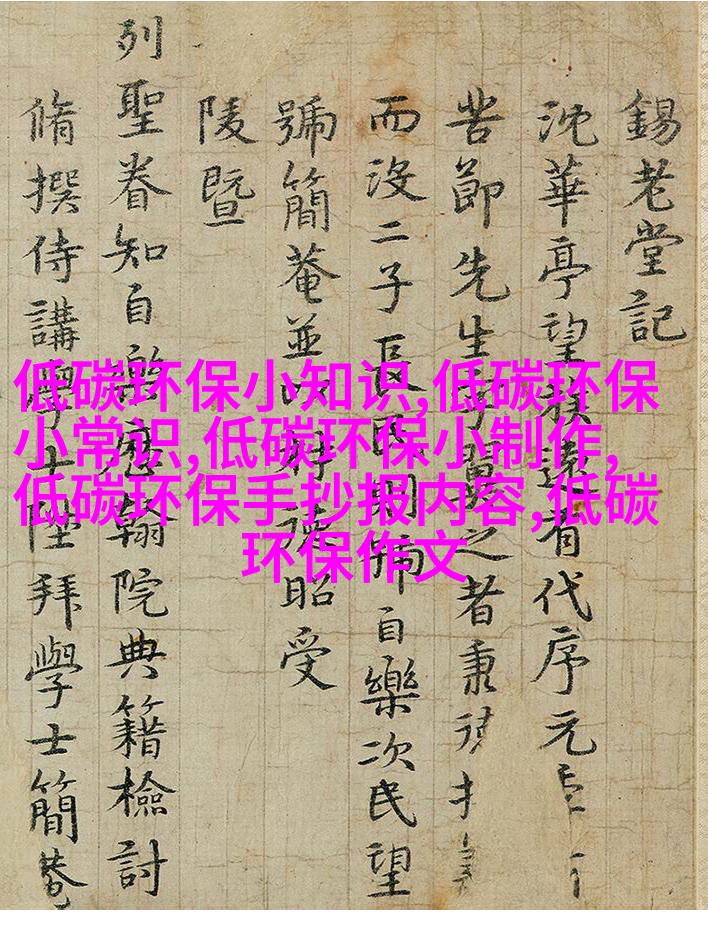 錫老堂記
沈華亭望族遠有代序元
苦節先生子翼之者秉
而沒二子長民則號自樂次民望
號簡菴並以德昭受
陵暨
列聖眷知自應翰院典籍檢討
脩撰侍講學士陞拜學士簡菴
低碳环保小知识,低碳环保
小常识,低碳环保小制作,
低碳环保手抄报内容,低碳
环保作文